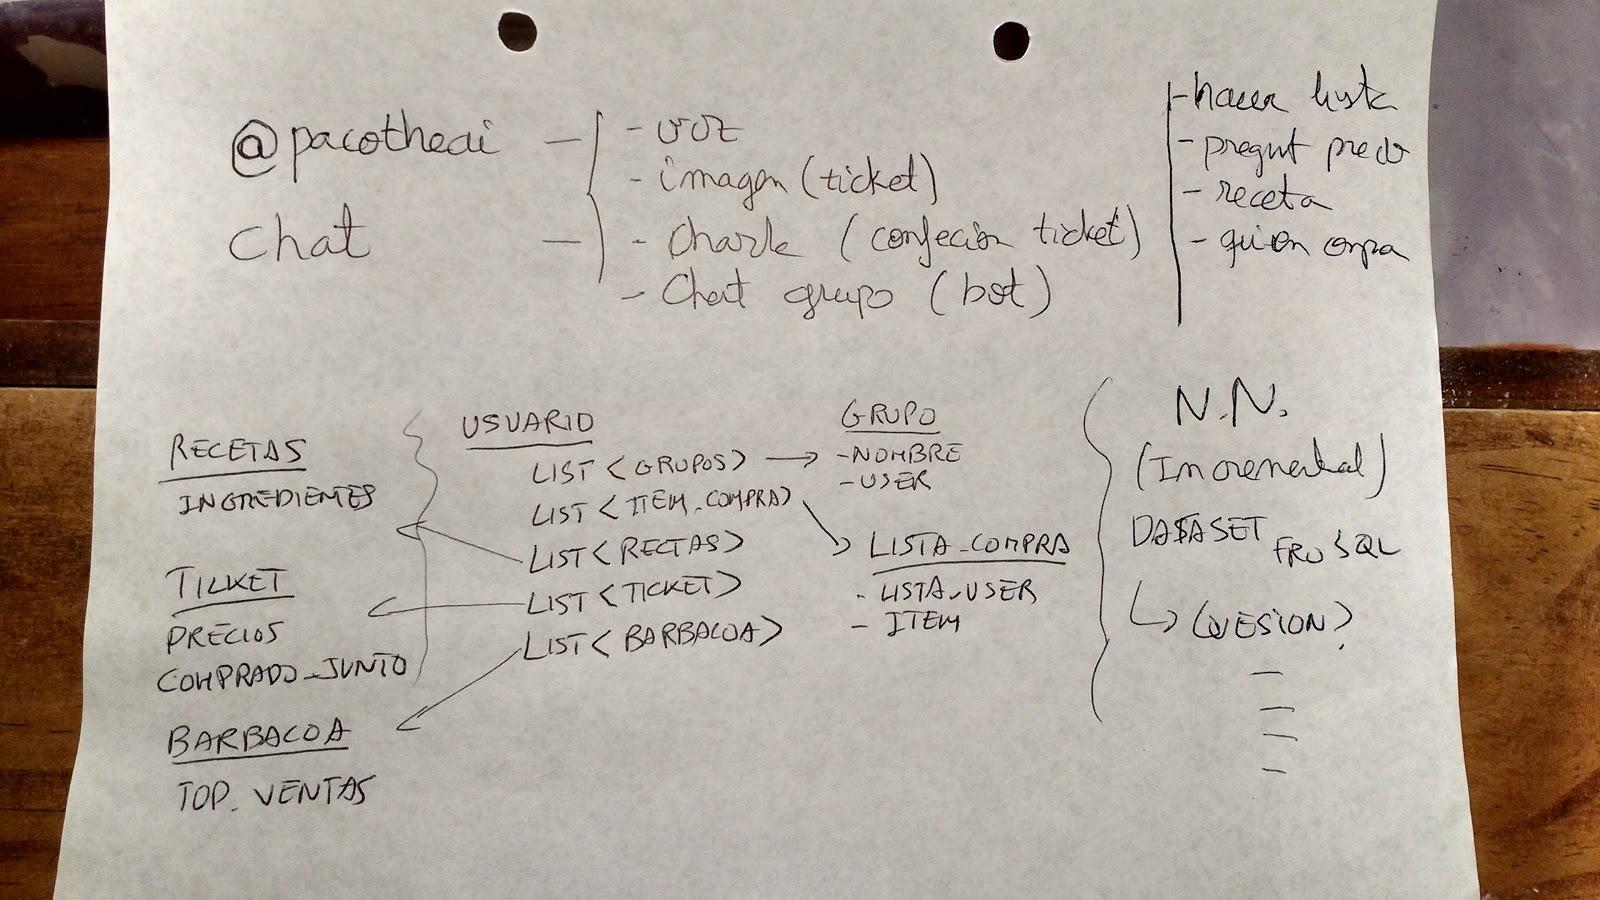 @pacotheai
chat
- voz
- imagen (ticket)
- charla (confeción ticket)
- Chat grupo (bot)
- hacer lista
- pregunt precio
- receta
- quien compra
RECETAS
INGREDIENTES
TICKET
PRECIOS
COMPRADO_JUNTO
BARBACOA
TOP_VENTAS
USUARIO
LIST <GRUPOS>
LIST <ITEM_COMPRA>
LIST <RECTAS>
LIST <TICKET>
LIST <BARBACOA>
GRUPO
- NOMBRE
- USER
LISTA_COMPRA
- LISTA_USER
- ITEM
N.N.
(Incremental)
DATASET
SQL